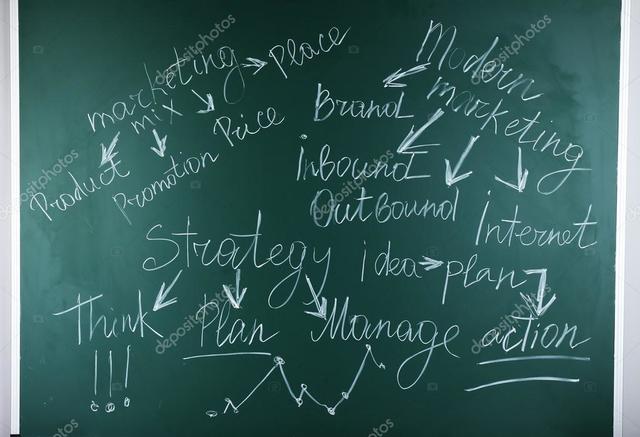 marketing mix → Place
Product
Promotion
Price
Modern marketing
Brand
inbound
Outbound
internet
Strategy
idea → plan
Think
Plan
Manage
action
!!!
depositphotos